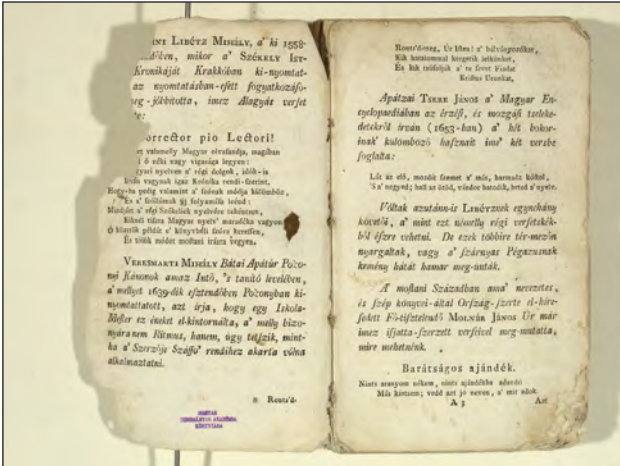 INI LIBÉTZ MIHÉLY, a' ki 1558-
dében, mikor a' SZÉKELY IST-
Kronikáját Krakkóban ki-nyomtat-
az nyomtatásban-esett fogyatkozáso-
meg-jobbította, imez Alagyát verset
te:
orrector pio Lectori!
valamelly Magyar olvasandja, magában
ő néki nagy vigasága legyen:
gyari nyelven a' régi dolgok, idők-is
vagynak igaz Krónika rendi-szerint.
Hogy-ha pedig valamint a' szónak módja külömböz,
És a' szóllásnak új folyamása leönd:
Mindjárt a' régi Székelyek nyelvére tekéntsen,
Kiknél tiszta Magyar nyelv' maradéka vagyon.
Ő közttök példát a' könyvbéli szóra keressen,
És tölök módot mostani írásra vegyen.
VERESMARTI MIHÉLY Bátai Apátúr Po'so-
nyi Kánonok amaz Intő, 's tanító levelében,
a' mellyet 1639-dik esztendőben Po'sonyban ki-
nyomtattatott, azt írja, hogy egy Iskola-
Mester ez éneket el-kintornálta, a' melly bizo-
nyára nem Ritmus, hanem, úgy tetszik, mint-
ha a' Szerzője Száffo' rendáihez akarta vólna
alkalmaztatni.
Ronts'd-
MAGYAR
TUDOMÁNYOS AKADÉMIA
KÖNYVTÁRA
Ronts'd-meg, Úr Isten! a' bálványozókat,
Kik hatalommal kergetik lelkünket,
És hűk tsúfolják a' te szent Fiadat
Kristus Urunkat,
Apátzai TSERE JÁNOS a' Magyar En-
cyclopaediában az érzési, és mozgási tseleke-
detekről írván (1653-ban) a' hét bokor-
inak' külömböző hasznait ime' két versbe
foglalta:
Lát az elő, mozdít szemet a' más, harmada kóstol,
'S a' negyed; hall az ötöd, vándor hatodik, heted a' nyelv.
Vóltak azutánn-is LIBÉTZnek egynehány
követői, a' mint ezt némelly régi versetskék-
ből észre vehetni. De ezek többire tér-mezőn
nyargaltak, vagy a' szárnyas Pégazusnak
kemény hátát hamar meg-unták.
A' mostani Században ama' nevezetes,
és szép könyvei-által Ország-szerte el-híre-
sedett Fő-tisztelendő MOLNÁR JÁNOS Úr már
imez ifjatta-szerzett verseivel meg-mutatta,
mire mehetnénk.
Barátságos ajándék.
Nints aranyom nékem, nints ajándékba adandó
Más kintsem; vedd azt jó neven, a' mit adok.
A 3
Azt